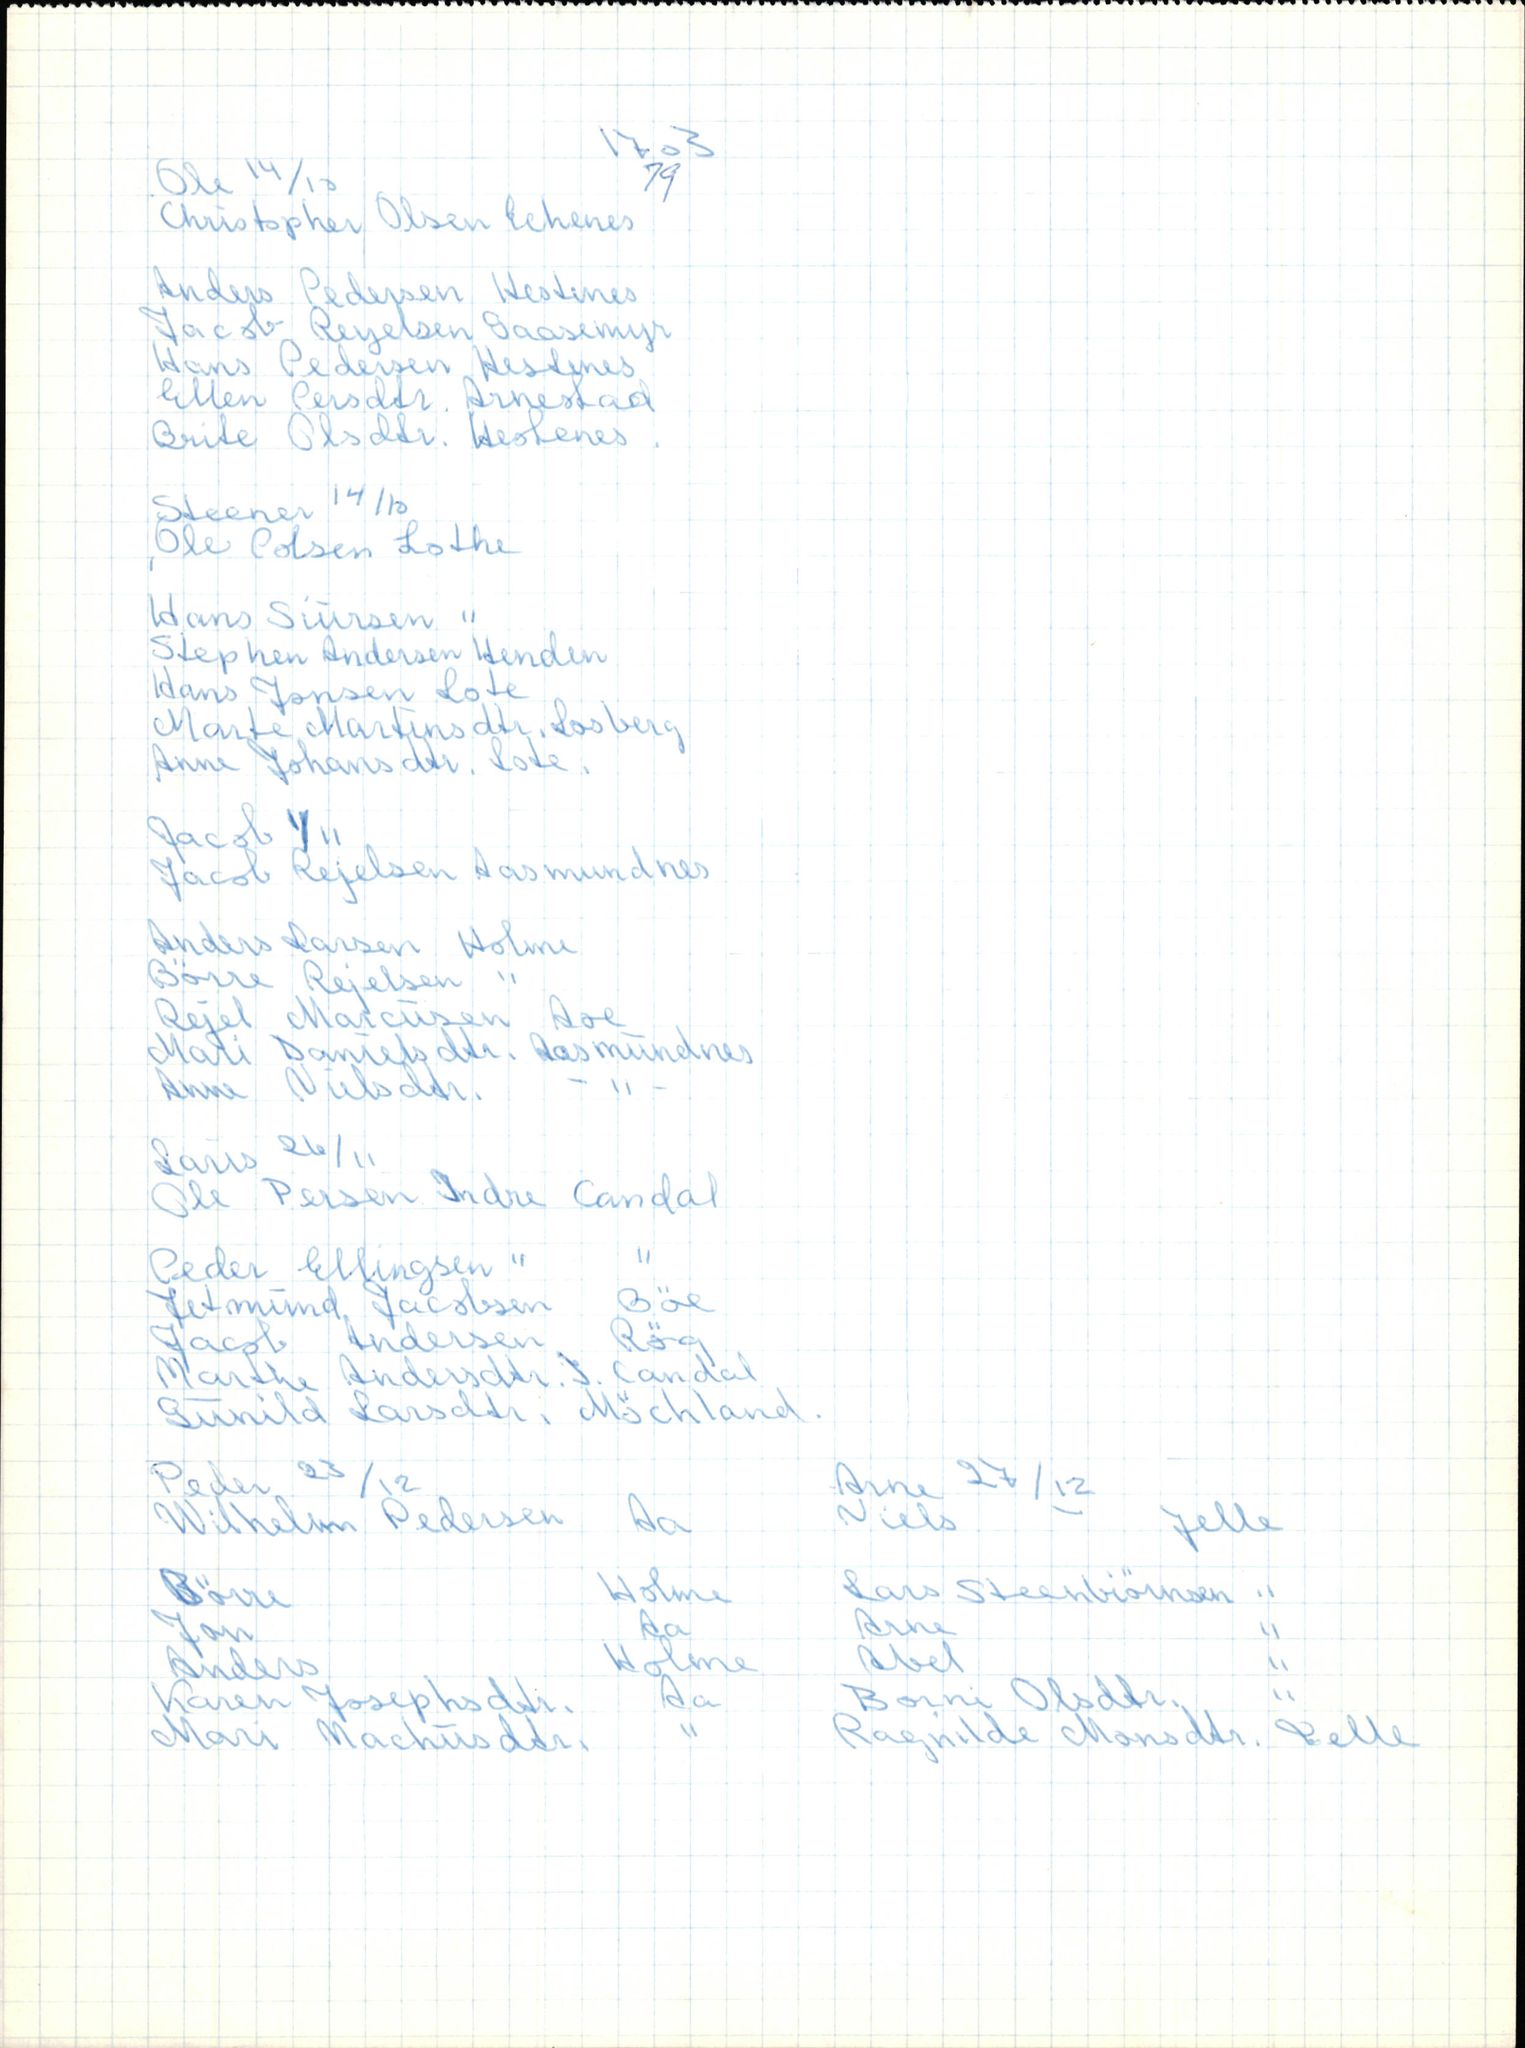 1703
79
Ole 14/10
Christopher Olsen Echenes
Anders Pedersen Hestenes
Jacob Rejelsen Gaasemyr
Hans Pedersen Hestenes
Ellen Persdtr. Arnestad
Brite Olsdtr. Hestenes.
Steener 14/10
Ole Polsen Lothe
Hans Siürsen "
Stephen Andersen Henden
Hans Jonsen Lote
Marte Martinsdtr. Losberg
Anne Johansdtr. Lote.
Jacob 1/11
Jacob Rejelsen Aasmundnes
Anders Larsen Holme
Börre Rejelsen "
Rejel Marcüsen Aae
Mari Danielsdtr. Aasmündnes
Anne Nielsdtr. - " -
Lars 26/11
Ole Persen Indre Candal
Peder Ellingsen " "
Jetmünd Jacobsen Böe
Jacob Andersen Rög
Marthe Andersdtr. I. Candal
Günild Larsdtr. Möchland.
Peder 23/12
Wilhelm Pedersen Aa
Börre Holme
Jon Aa
Anders Holme
Karen Josephsdtr. Aa
Mari Machüsdtr. "
Arne 27/12
Niels - Jelle
Lars Steenbiörnsen "
Arne "
Abel "
Borni Olsdtr. "
Ragnilde Monsdtr. Lelle